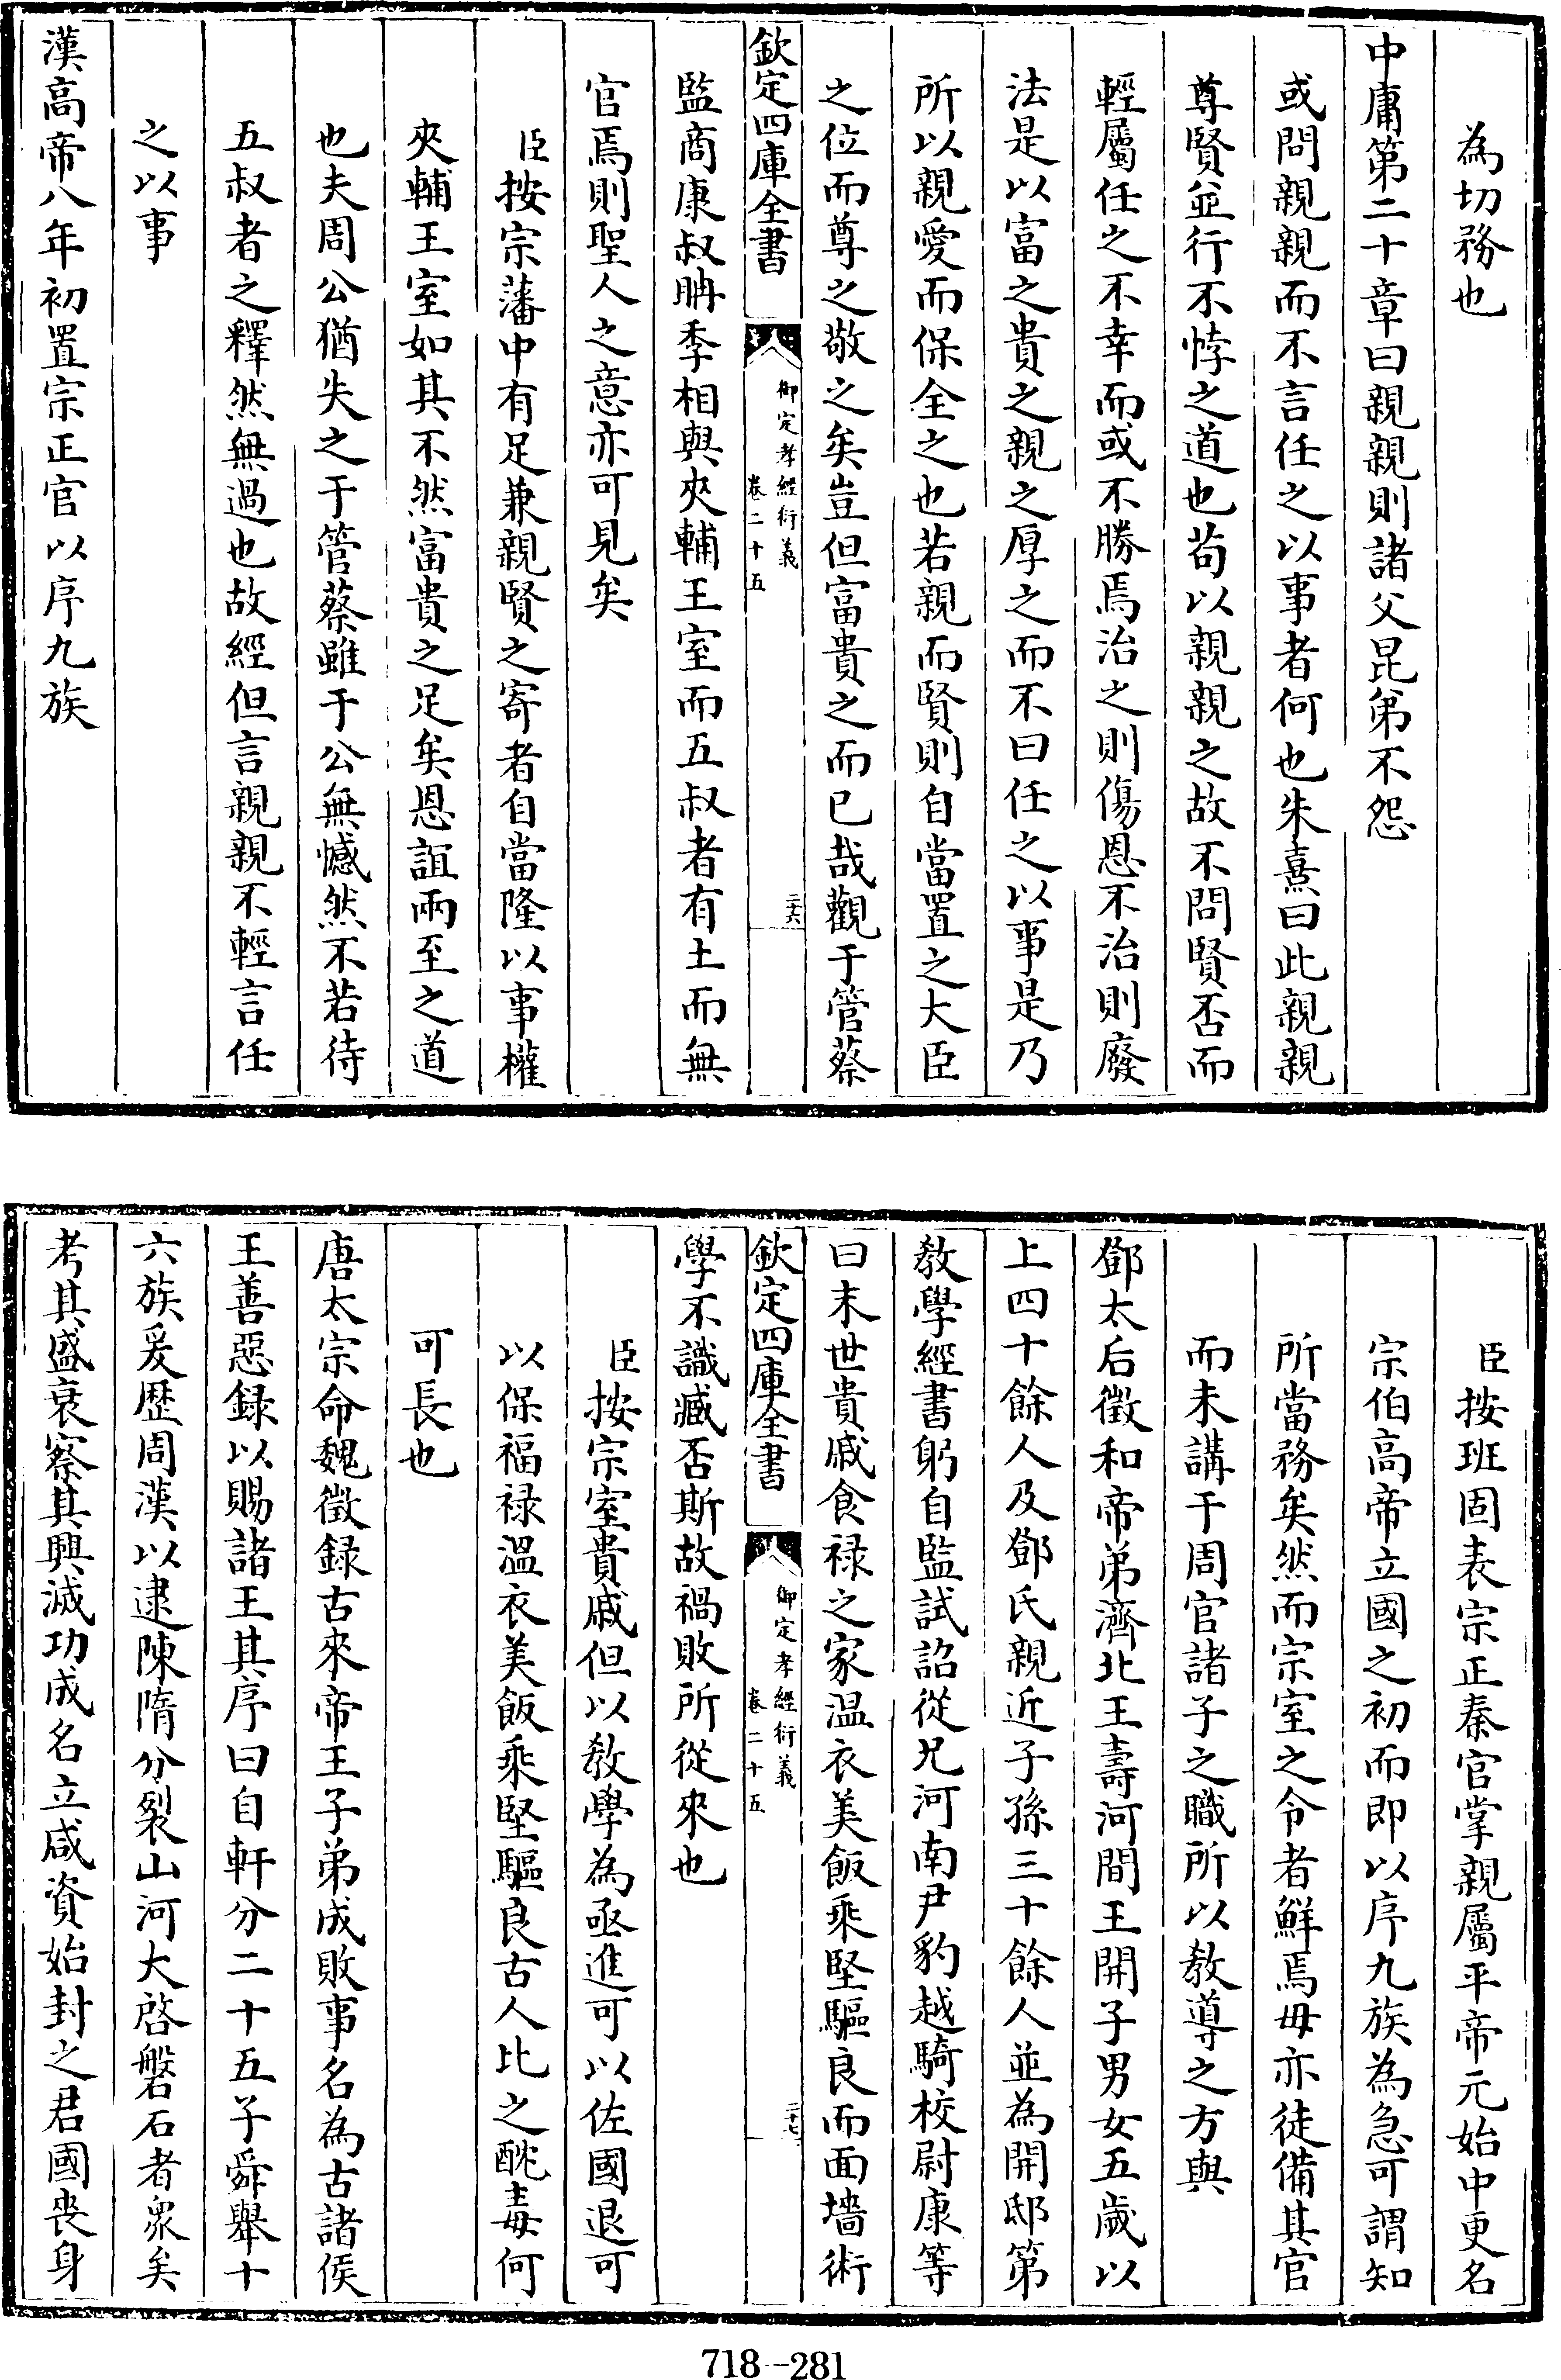 為切務也
中庸第二十章曰親親則諸父昆弟不怨
或問親親而不言任之以事者何也朱熹曰此親親
尊賢並行不悖之道也苟以親親之故不問賢否而
輕屬任之不幸而或不勝焉治之則傷恩不治則廢
法是以富之貴之親之厚之而不曰任之以事是乃
所以親愛而保全之也若親而賢則自當置之大臣
之位而尊之敬之矣豈但富貴之而已哉觀于管蔡
欽定四庫全書
御定孝經衍義
卷二十五
二十六
監商康叔聃季相與夾輔王室而五叔者有土而無
官焉則聖人之意亦可見矣
臣按宗藩中有足兼親賢之寄者自當隆以事權
夾輔王室如其不然富貴之足矣恩誼兩至之道
也夫周公猶失之于管蔡雖于公無憾然不若待
五叔者之釋然無過也故經但言親親不輕言任
之以事
漢高帝八年初置宗正官以序九族
臣按班固表宗正秦官掌親屬平帝元始中更名
宗伯高帝立國之初而即以序九族為急可謂知
所當務矣然而宗室之令者鮮焉毋亦徒備其官
而未講于周官諸子之職所以教導之方與
鄧太后徵和帝弟濟北王壽河間王開子男女五歲以
上四十餘人及鄧氏親近子孫三十餘人並為開邸第
教學經書躬自監試詔從兄河南尹豹越騎校尉康等
曰末世貴戚食祿之家溫衣美飯乘堅驅良而面墻術
欽定四庫全書
御定孝經衍義
卷二十五
二十七
學不識臧否斯故禍敗所從來也
臣按宗室貴戚但以教學為亟進可以佐國退可
以保福祿溫衣美飯乘堅驅良古人比之酖毒何
可長也
唐太宗命魏徵録古來帝王子弟成敗事名為古諸侯
王善惡録以賜諸王其序曰自軒分二十五子舜舉十
六族爰歴周漢以逮陳隋分裂山河大啓磐石者衆矣
考其盛衰察其興滅功成名立咸資始封之君國喪身
718-281